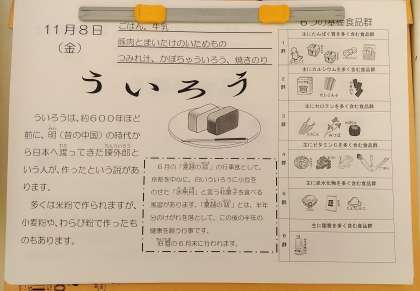 11月8日
(金)
ごはん、牛乳
豚肉とまいたけのいためもの
つみれ汁、かぼちゃういろう、焼きのり
ういろう
ういろうは、約600年ほど
前に、明(昔の中国)の時代か
ら日本へ渡ってきた陳外郎と
いう人が、作ったという説があ
ります。
多くは米粉で作られますが、
小麦粉や、わらび粉で作ったも
のもあります。
6月の「夏越の祓」の行事食として、
京都を中心に、白いういろうに小豆を
のせた「水無月」と言う和菓子を食べる
風習があります。「夏越の祓」とは、半年
分のけがれを落として、この後の半年の
健康を願う行事です。
の6月末に行われます。
6つの基礎食品群
主にたんぱく質を多く含む食品群
1群
主にカルシウムを多く含む食品群
2群
主にカロテンを多く含む食品群
3群
主にビタミンCを多く含む食品群
4群
主に炭水化物を多く含む食品群
5群
主に脂質を多く含む食品群
6群